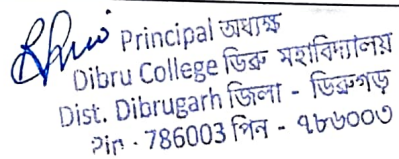 Principal অধ্যক্ষ
Dibru College ডিব্রু মহাবিদ্যালয়
Dist. Dibrugarh জিলা - ডিব্রুগড়
Pin - 786003 পিন - ৭৮৬০০৩